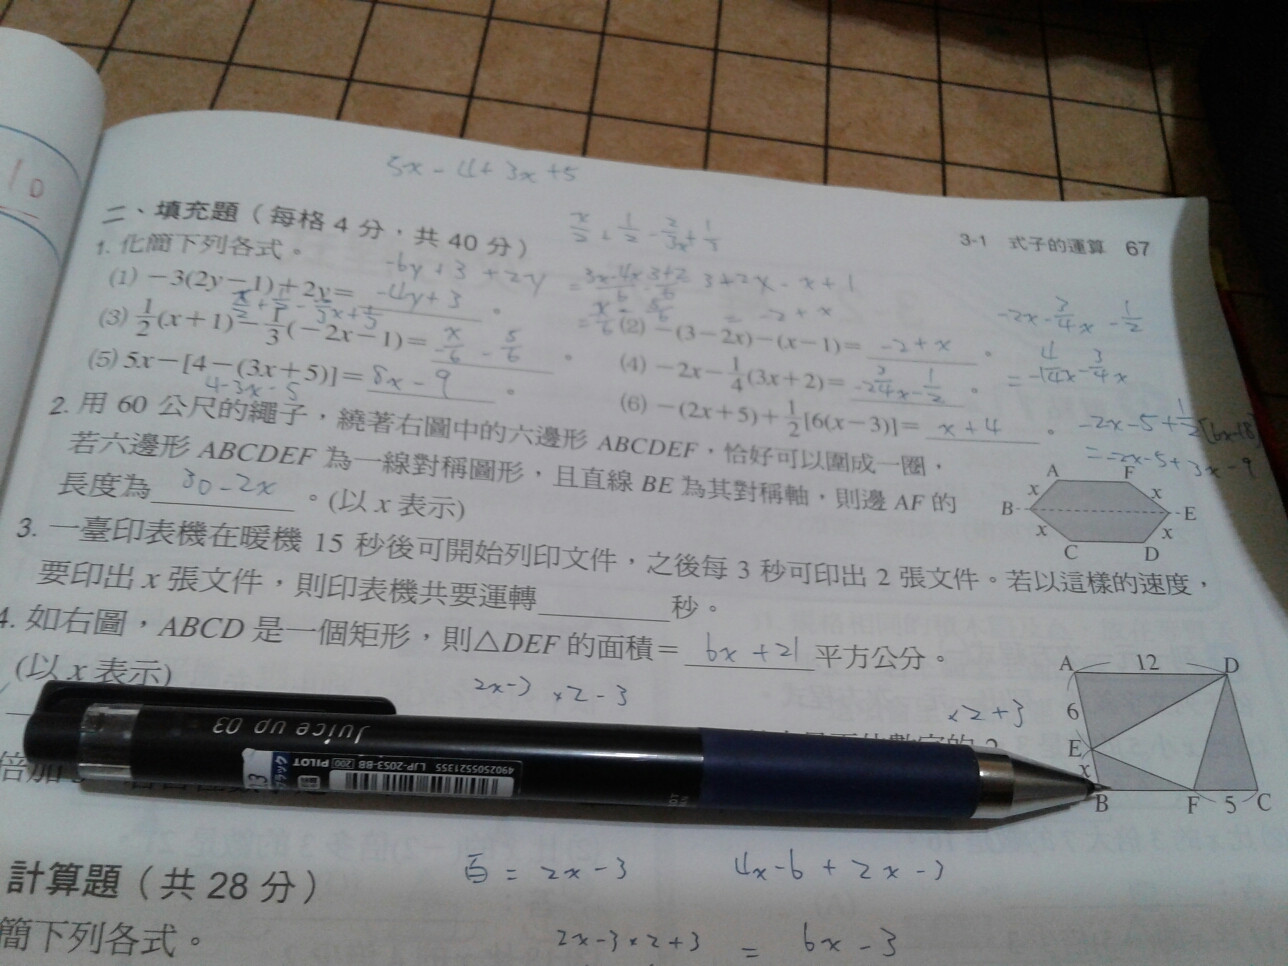 10
5x - 4 + 3x + 5
二、填充題(每格 4 分，共 40 分)
3-1 式子的運算 67
1. 化簡下列各式。
-6y + 3 + 2y
(1) -3(2y-1)+2y= -4y+3 。
3+2x - x + 1
= -2 + x
(2) -(3-2x)-(x-1)= -2+x 。
(3) 1/2(x+1)-1/3(-2x-1)= x/-6 - 5/6 。
-2x - 3/4x - 1/2
(4) -2x-1/4(3x+2)= -2 3/4x - 1/2 。
(5) 5x-[4-(3x+5)]= 8x - 9 。
4-3x-5
(6) -(2x+5)+1/2[6(x-3)]= x+4 。
-2x-5+1/2[6x-18]
= -2x-5+3x-9
2. 用 60 公尺的繩子，繞著右圖中的六邊形 ABCDEF，恰好可以圍成一圈，
若六邊形 ABCDEF 為一線對稱圖形，且直線 BE 為其對稱軸，則邊 AF 的
長度為 30-2x 。(以 x 表示)
A F
x x
B E
x x
C D
3. 一臺印表機在暖機 15 秒後可開始列印文件，之後每 3 秒可印出 2 張文件。若以這樣的速度，
要印出 x 張文件，則印表機共要運轉 秒。
4. 如右圖，ABCD 是一個矩形，則△DEF 的面積= 6x+21 平方公分。
(以 x 表示)
A 12 D
6
E
x
B F 5 C
2x-3 ×2-3
×2+3
Juice up 03
4902505521355 LJP-20S3-BB
PILOT 200
ブラック
倍加
百 = 2x-3
4x-6+2x-3
計算題(共 28 分)
2x-3×2+3 = 6x-3
簡下列各式。